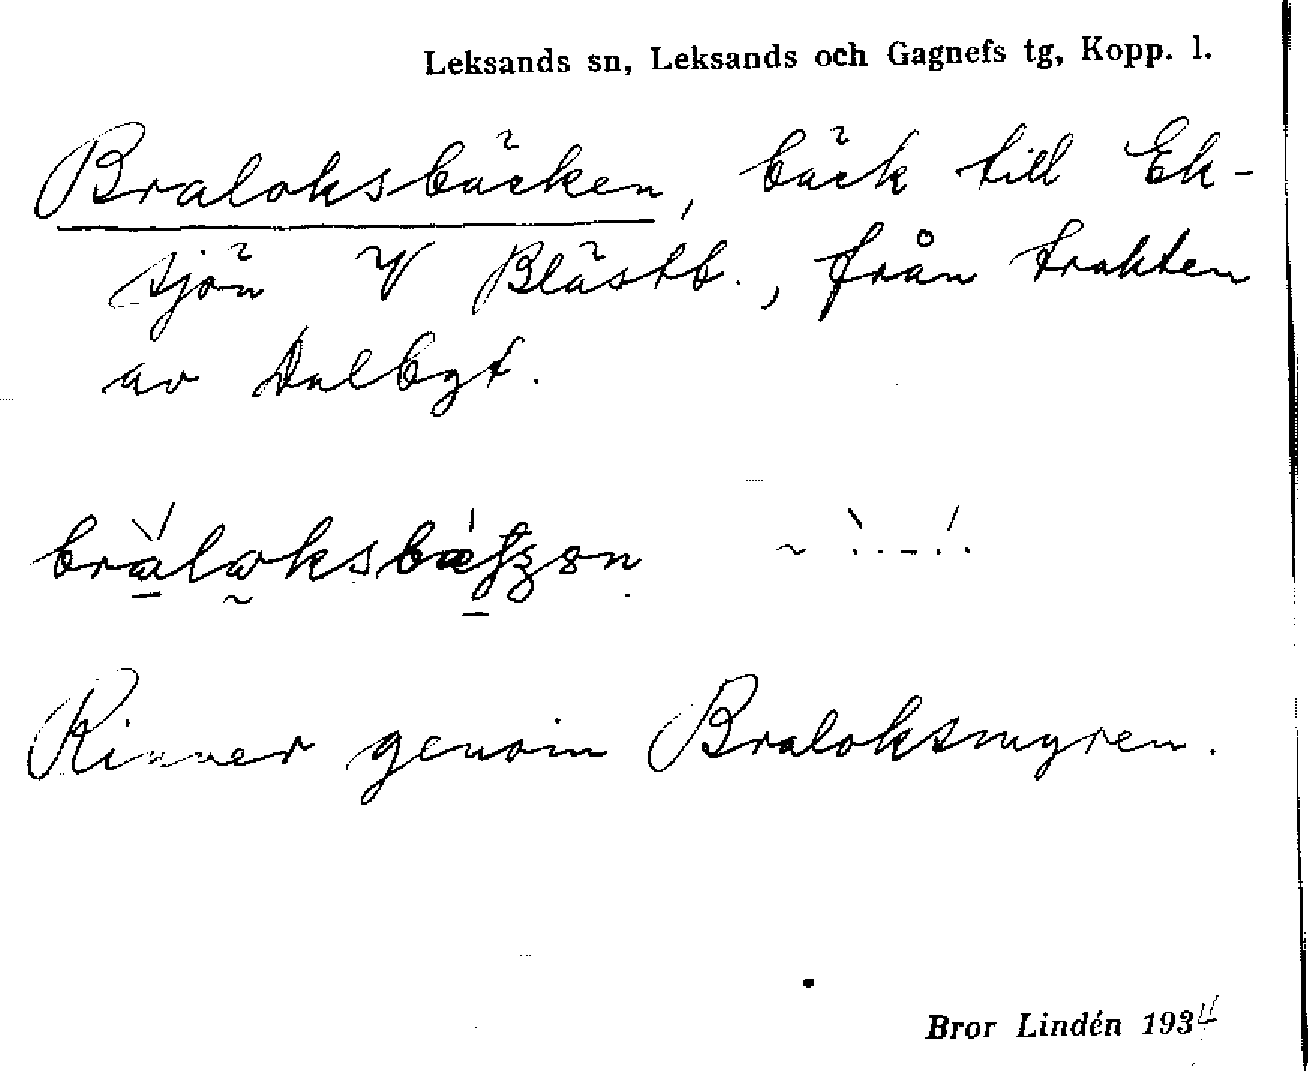 Leksands sn, Leksands och Gagnefs tg, Kopp. l.
Braloksbäcken, bäck till Ek-
sjön V Blästb., från trakten
av Dalbgt.
Rinner genom Braloksmyren.
Bror Lindén 1934